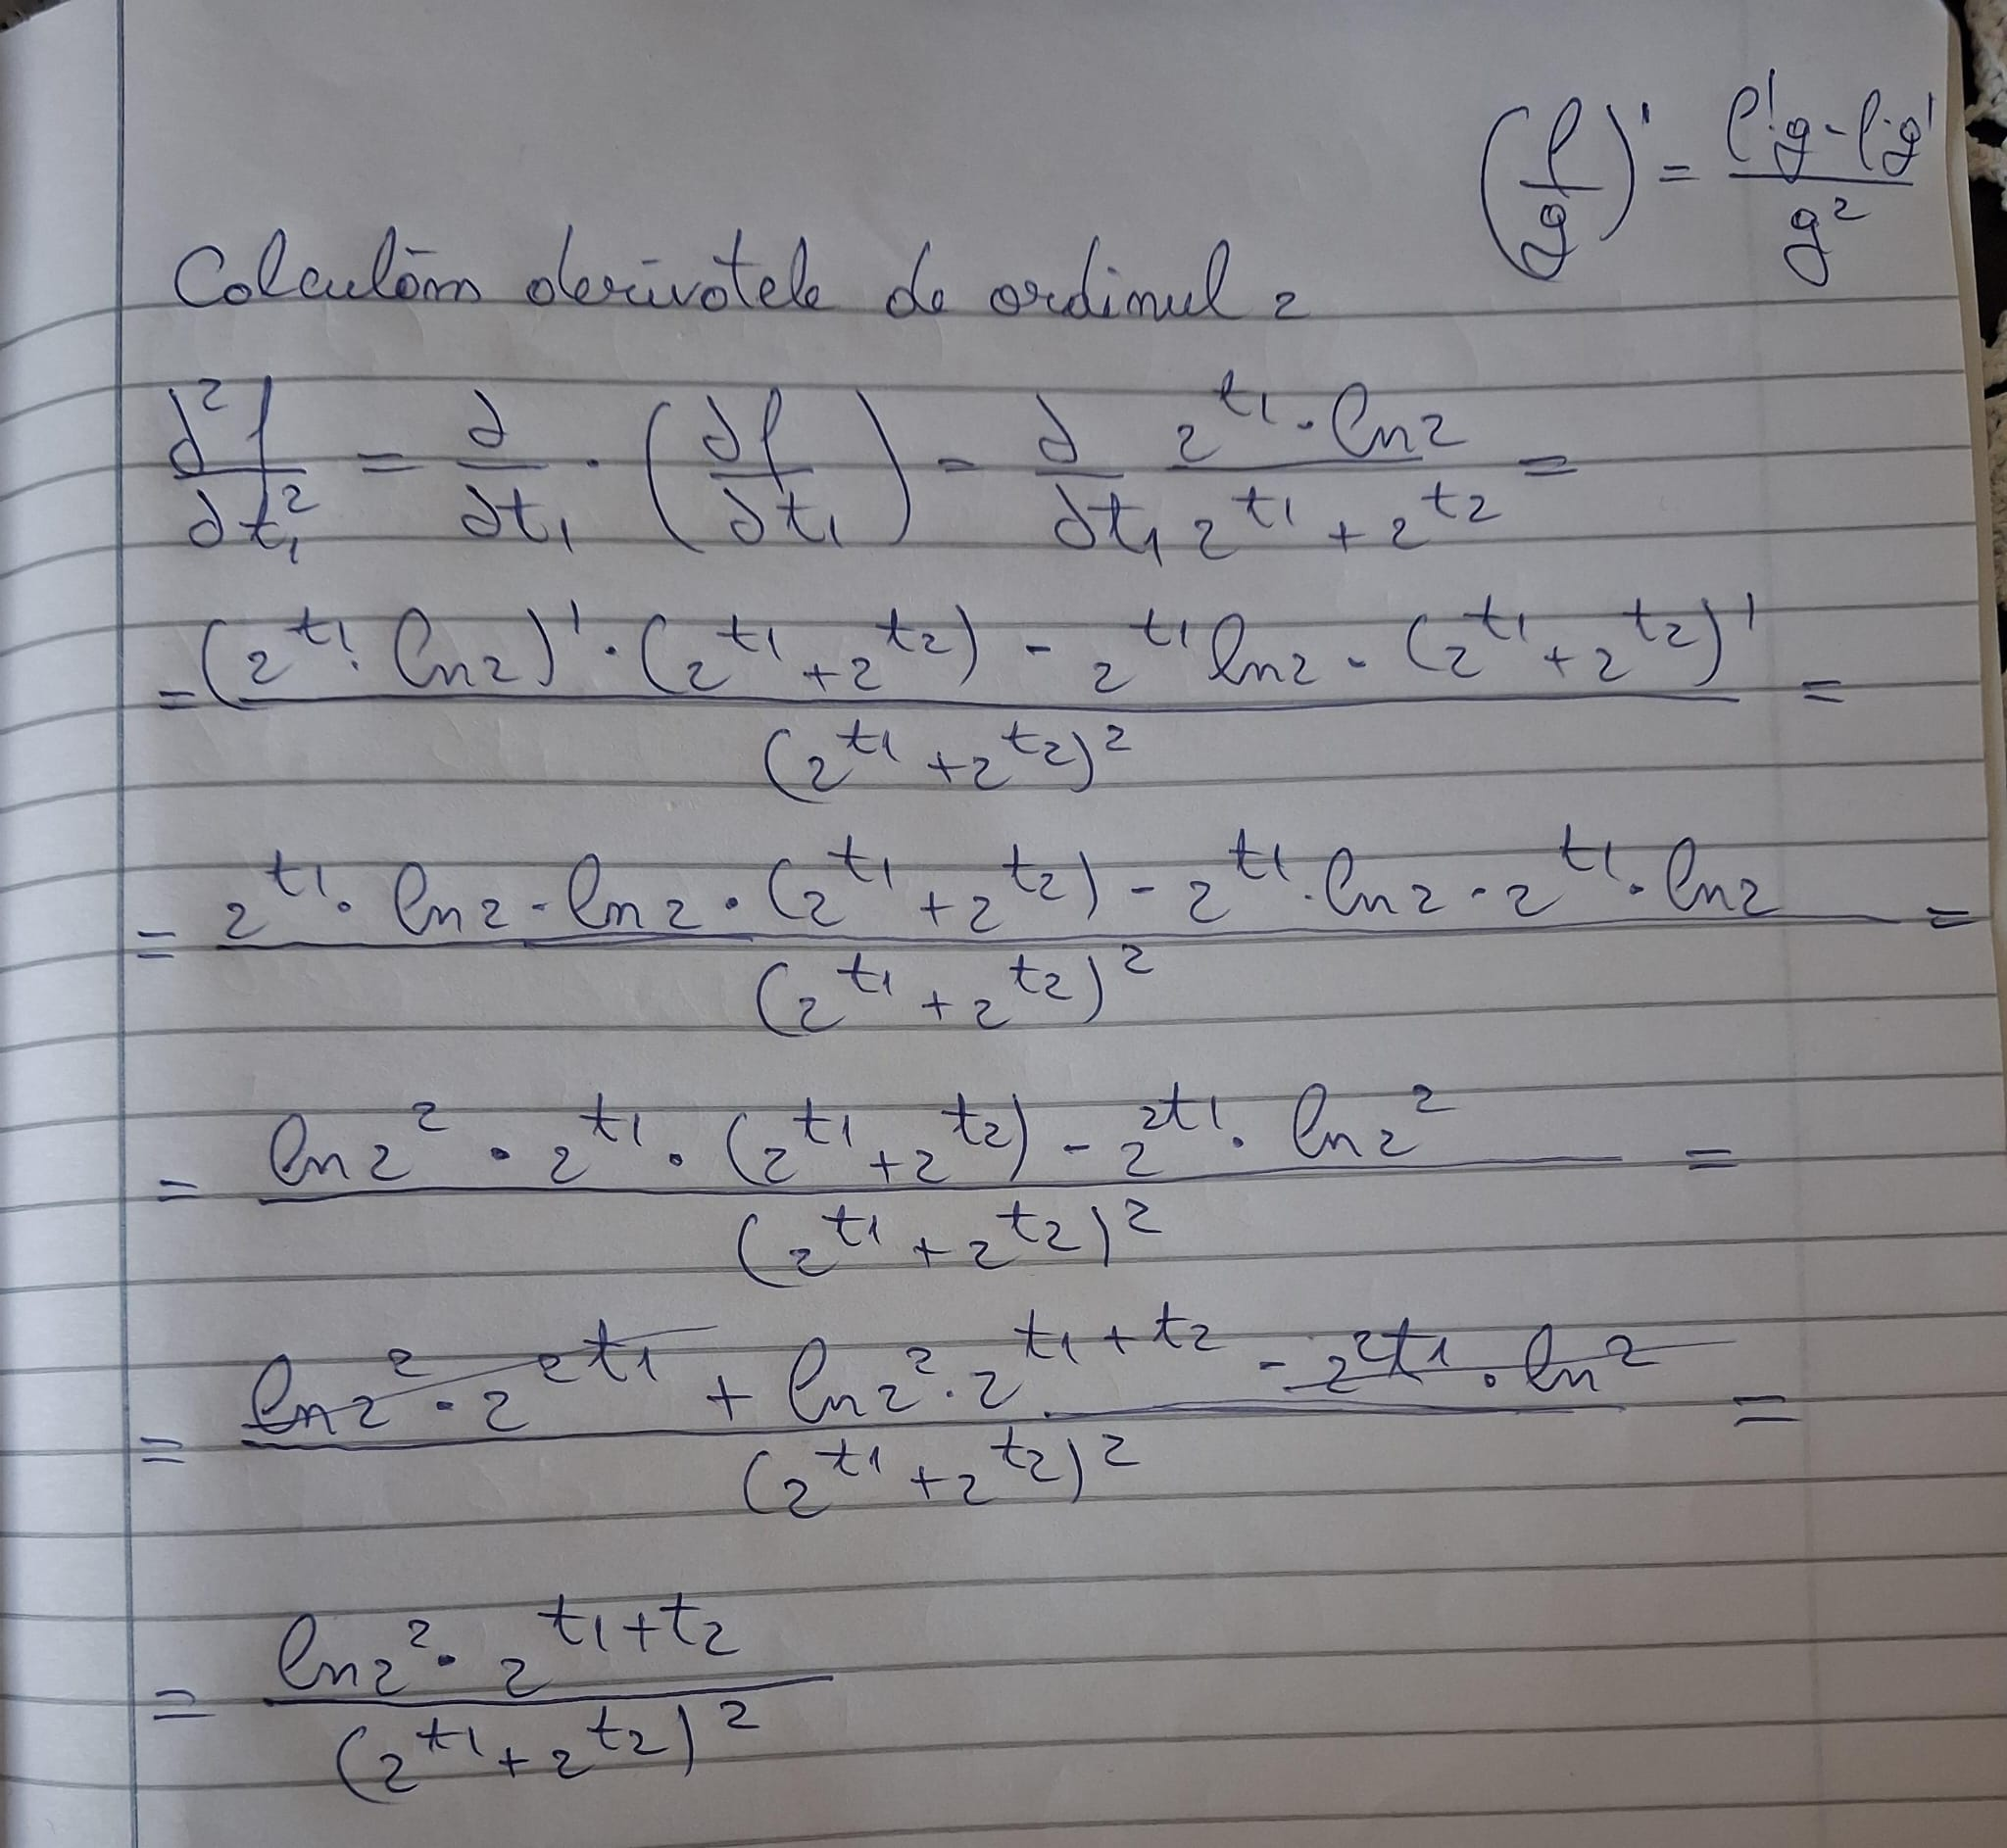 (f/g)' = (f'·g - f·g')/g²
Calculăm derivatele de ordinul 2
∂²f/∂t₁² = ∂/∂t₁ · (∂f/∂t₁) = ∂/∂t₁ (2^t₁ · ln2)/(2^t₁ + 2^t₂) =
= ((2^t₁ · ln2)' · (2^t₁ + 2^t₂) - 2^t₁ ln2 · (2^t₁ + 2^t₂)')/(2^t₁ + 2^t₂)² =
= (2^t₁ · ln2 · ln2 · (2^t₁ + 2^t₂) - 2^t₁ · ln2 · 2^t₁ · ln2)/(2^t₁ + 2^t₂)² =
= (ln2² · 2^t₁ · (2^t₁ + 2^t₂) - 2^2t₁ · ln2²)/(2^t₁ + 2^t₂)² =
= (ln2² · 2^2t₁ + ln2² · 2^(t₁+t₂) - 2^2t₁ · ln²)/(2^t₁ + 2^t₂)² =
= (ln2² · 2^(t₁+t₂))/(2^t₁ + 2^t₂)²